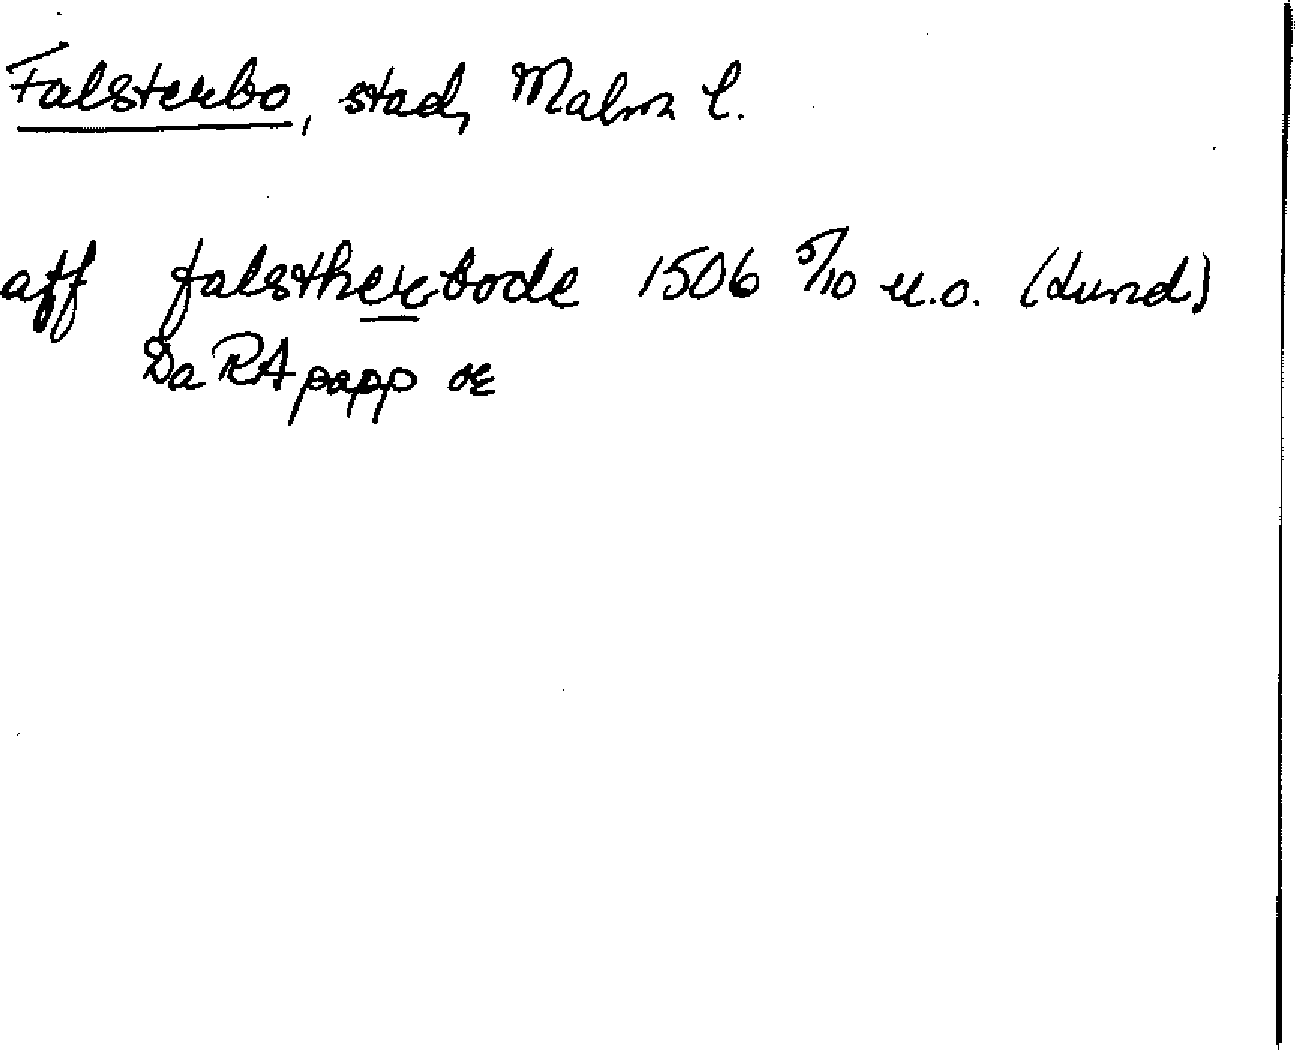 Falsterbo, stad, Malm l.
aff falstherbode 1506 5/10 u.o. (Lund)
Da RA papp